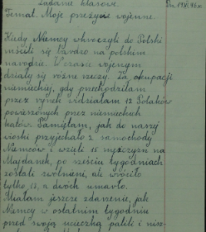 Zadanie klasowe. Dn. 19/VI 46 r.
Temat. Moje przeżycia wojenne.
Kiedy Niemcy wkroczyli do Polski
mścili się bardzo na polskim
narodzie. W czasie wojennym
działy się różne rzeczy. Za okupacji
niemieckiej, gdy przechodziłam
przez rynek widziałam 13 Polaków
powieszonych przez niemieckich
katów. Pamiętam, jak do naszej
wioski przyjechało z samochody
Niemców i wzięli 15 mężczyzn na
Majdanek, po sześciu tygodniach
zostali zwolnieni, ale wróciło
tylko 13, a dwóch umarło.
Miałam jeszcze zdarzenie, jak
Niemcy w ostatnim tygodniu
przed swoją ucieczką palili i nisz-